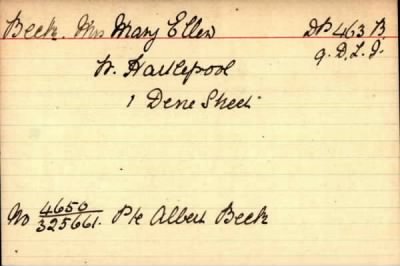 Beck. Mrs Mary Ellen DP 463 B
9. D.L.I.
W. Hartlepool
1 Dene Street
No 4650/325661. Pte Albert Beck